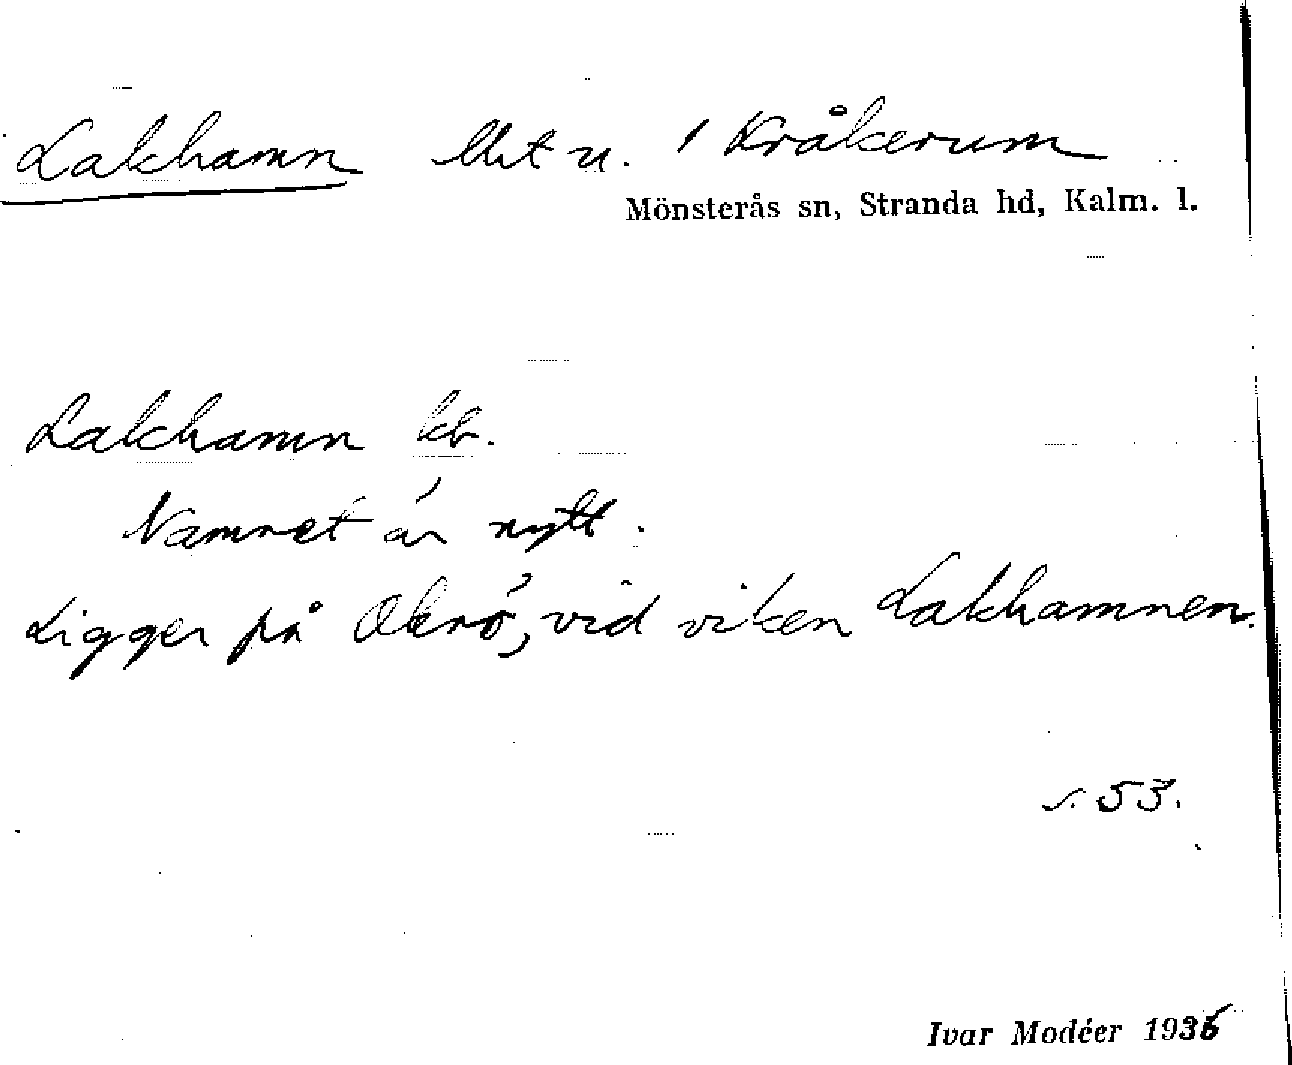 Lakhamn lht u. / Kråkerum
Mönsterås sn, Stranda hd, Kalm. l.
Lakhamn kb.
Namnet är nytt.
Ligger på Oknö, vid viken Lakhamnen.
s. 53.
Ivar Modéer 1936